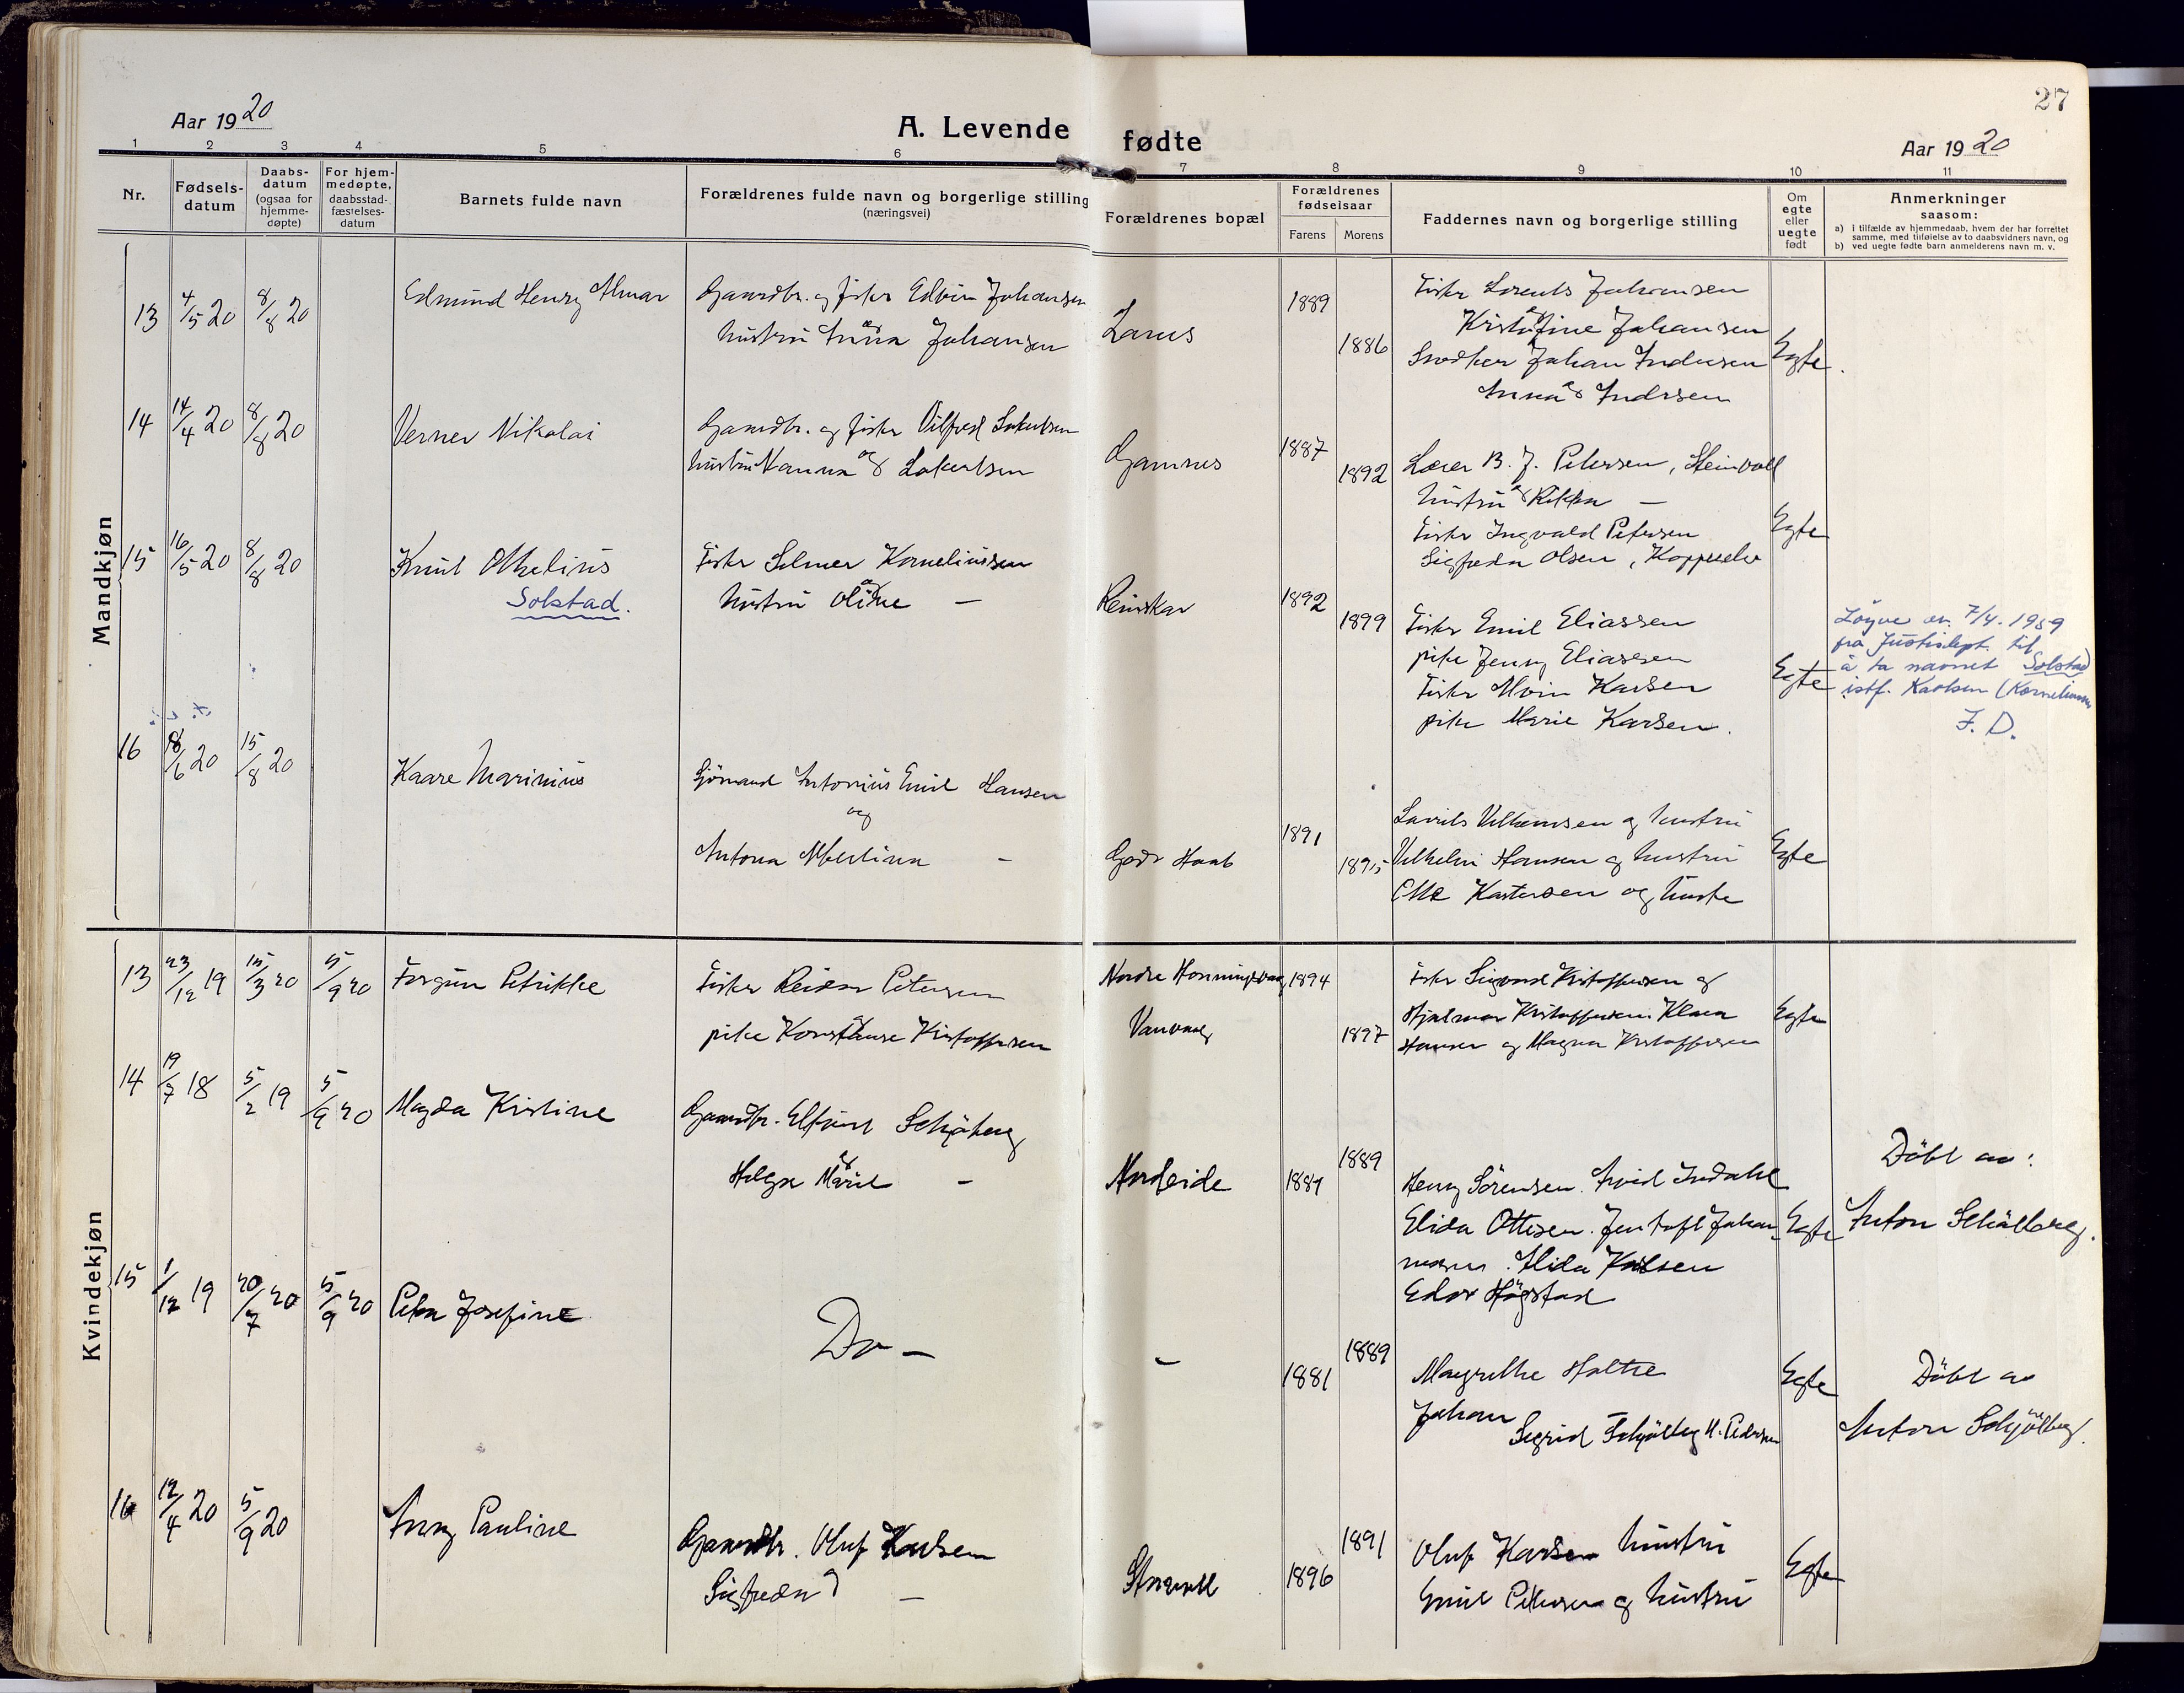 27
Aar 1920
A. Levende fødte
Aar 1920
1 2 3 4 5 6 7 8 9 10 11
Nr.
Fødsels-
datum
Daabs-
datum
(ogsaa for
hjemme-
døpte)
For hjem-
medøpte,
daabsstad-
fæstelses-
datum
Barnets fulde navn
Forældrenes fulde navn og borgerlige stilling
(næringsvei)
Forældrenes bopæl
Forældrenes
fødselsaar
Farens Morens
Faddernes navn og borgerlige stilling
Om
egte
eller
uegte
født
Anmerkninger
saasom:
a) I tilfælde av hjemmedaab, hvem der har forrettet
samme, med tilføielse av to daabsvidners navn, og
b) ved uegte fødte barn anmelderens navn m. v.
Mandkjøn
13 4/5 20 8/8 20 Edmund Henry Almar
Gaardbr. og fisker Edvin Johansen
hustru Anna Johansen
1889 1886
Fisker Lorents Johansen
Johansen
Johan Andersen
Anna Andersen
Egte.
14 14/4 20 8/8 20 Verner Nikolai
Gaardbr. og fisker Vilfred
hustru Hanna
Gamnes
1887 1892
Lærer B. J. Petersen, Steinvoll
hustru Rikka —
Fisker Ingvald Petersen
Sigfreda Olsen, Koppelv
Egte
15 16/5 20 8/8 20 Knut Othelius
Solstad.
Fisker Selmer Korneliussen
hustru Oline —
Reinskar
1892 1899
Fisker Emil Eliassen
pike Jenny Eliassen
Fisker Alvin Karlsen
pike Marie Karlsen.
Egte
Løyve av 7/4. 1959
fra Justisdept. til
å ta navnet Solstad
istf. Karlsen (Korneliussen
F. D.
16 18/6 20 15/8 20 Kaare Marinius
Sjömand Antonius Emil Hansen
og
Antona Albertina —
Gode Haab
1891 1895
Laurits Vilhelmsen og hustru
Vilhelm Hansen og hustru
og hustru
Egte
Kvindekjøn
13 23/12 19 15/3 20 5/9 20 Torgun Petrikke
Fisker Reidar Petersen
pike Konstanse Kristoffersen
Nordre Honningsvaag
Vanvaag
1894 1897
Fisker Sigvard Kristoffersen og
Hjalmar Kristoffersen. Klara
Hansen og Magna Kristoffersen
Egte
14 19/7 18 5/2 19 5/9 20 Magda Kristine
Gaardbr.
Helga Marie —
Nordeide
1881 1889
Henry Sörensen. Arvid Indahl
Elida Ottesen. Jentoft Johan-
Alida Karlsen
Edor Högstad
Egte
Döbt av:
Anton Schjølberg.
15 1/12 19 20/7 20 5/9 20 Petra Josefine
Do —
—
1881 1889
Margrethe Holthe
Johan
Sigrid Schjølberg H. Pedersen
Egte
Döbt av
Anton Schjølberg.
16 12/4 20 5/9 20 Anny Pauline
Gaardbr. Oluf Karlsen
Sigfreda —
1896 1891
Oluf Karlsen hustru
Emil Petersen og hustru
Egte